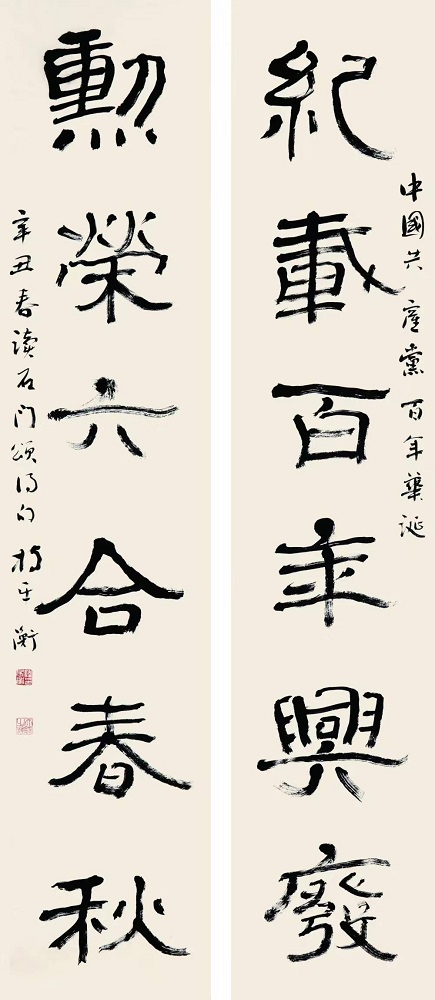 中國共產黨百年華誕
紀載百年興廢
勳榮六合春秋
辛丑春读石门頌得句